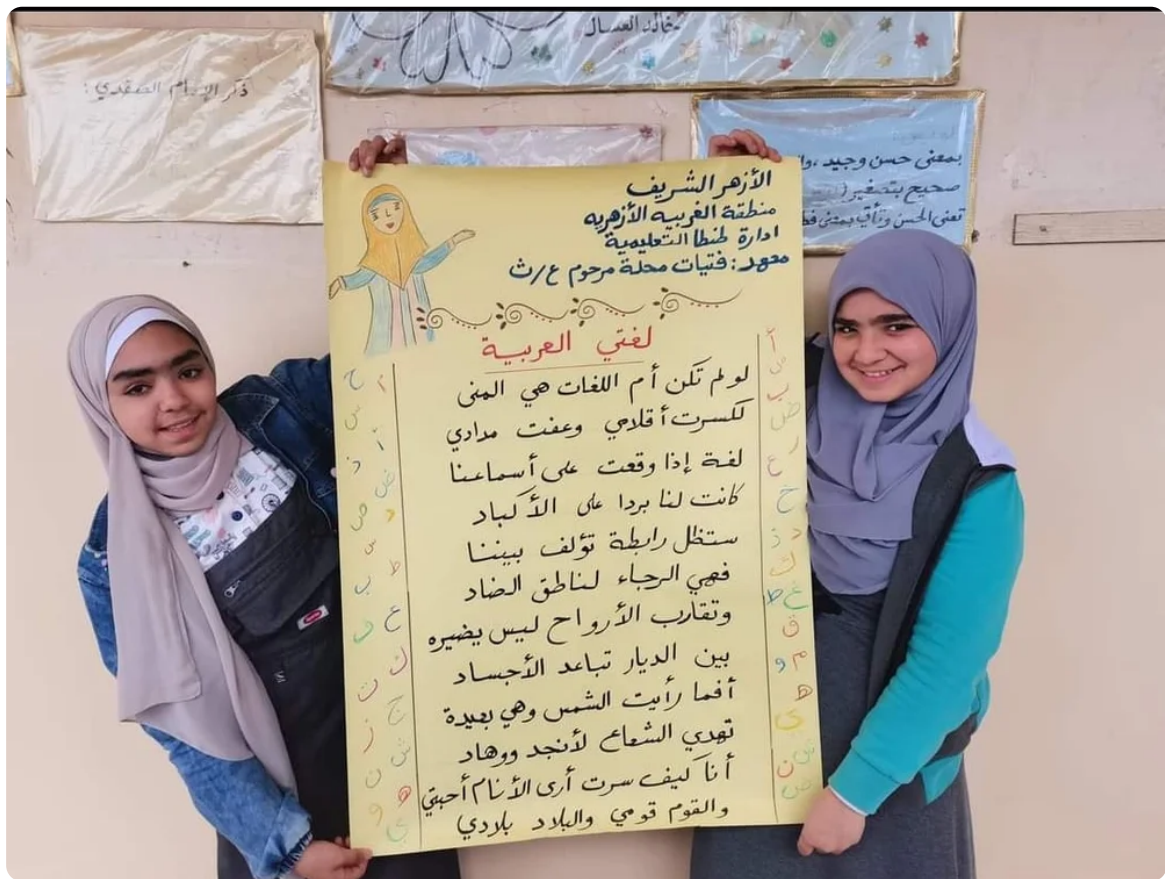 خالد العسال
ذكر الإمام الصفدي:
بمعنى حسن وجيد، وا
صحيح بتصغير (
تعنى الحسن وتأتي بمعنى فط
الأزهر الشريف
منطقة الغربيه الأزهريه
ادارة طنطا التعليمية
معهد: فتيات محلة مرحوم ع/ث
لغتي العربية
لو لم تكن أم اللغات هي المنى
لكسرت أقلامي وعفت مدادي
لغة إذا وقعت على أسماعنا
كانت لنا بردا على الأكباد
ستظل رابطة تؤلف بيننا
فهي الرجاء لناطق الضاد
وتقارب الأرواح ليس يضيره
بين الديار تباعد الأجساد
أفما رأيت الشمس وهي بعيدة
تهدي الشعاع لأنجد ووهاد
أنا كيف سرت أرى الأنام أحبتي
والقوم قومي والبلاد بلادي